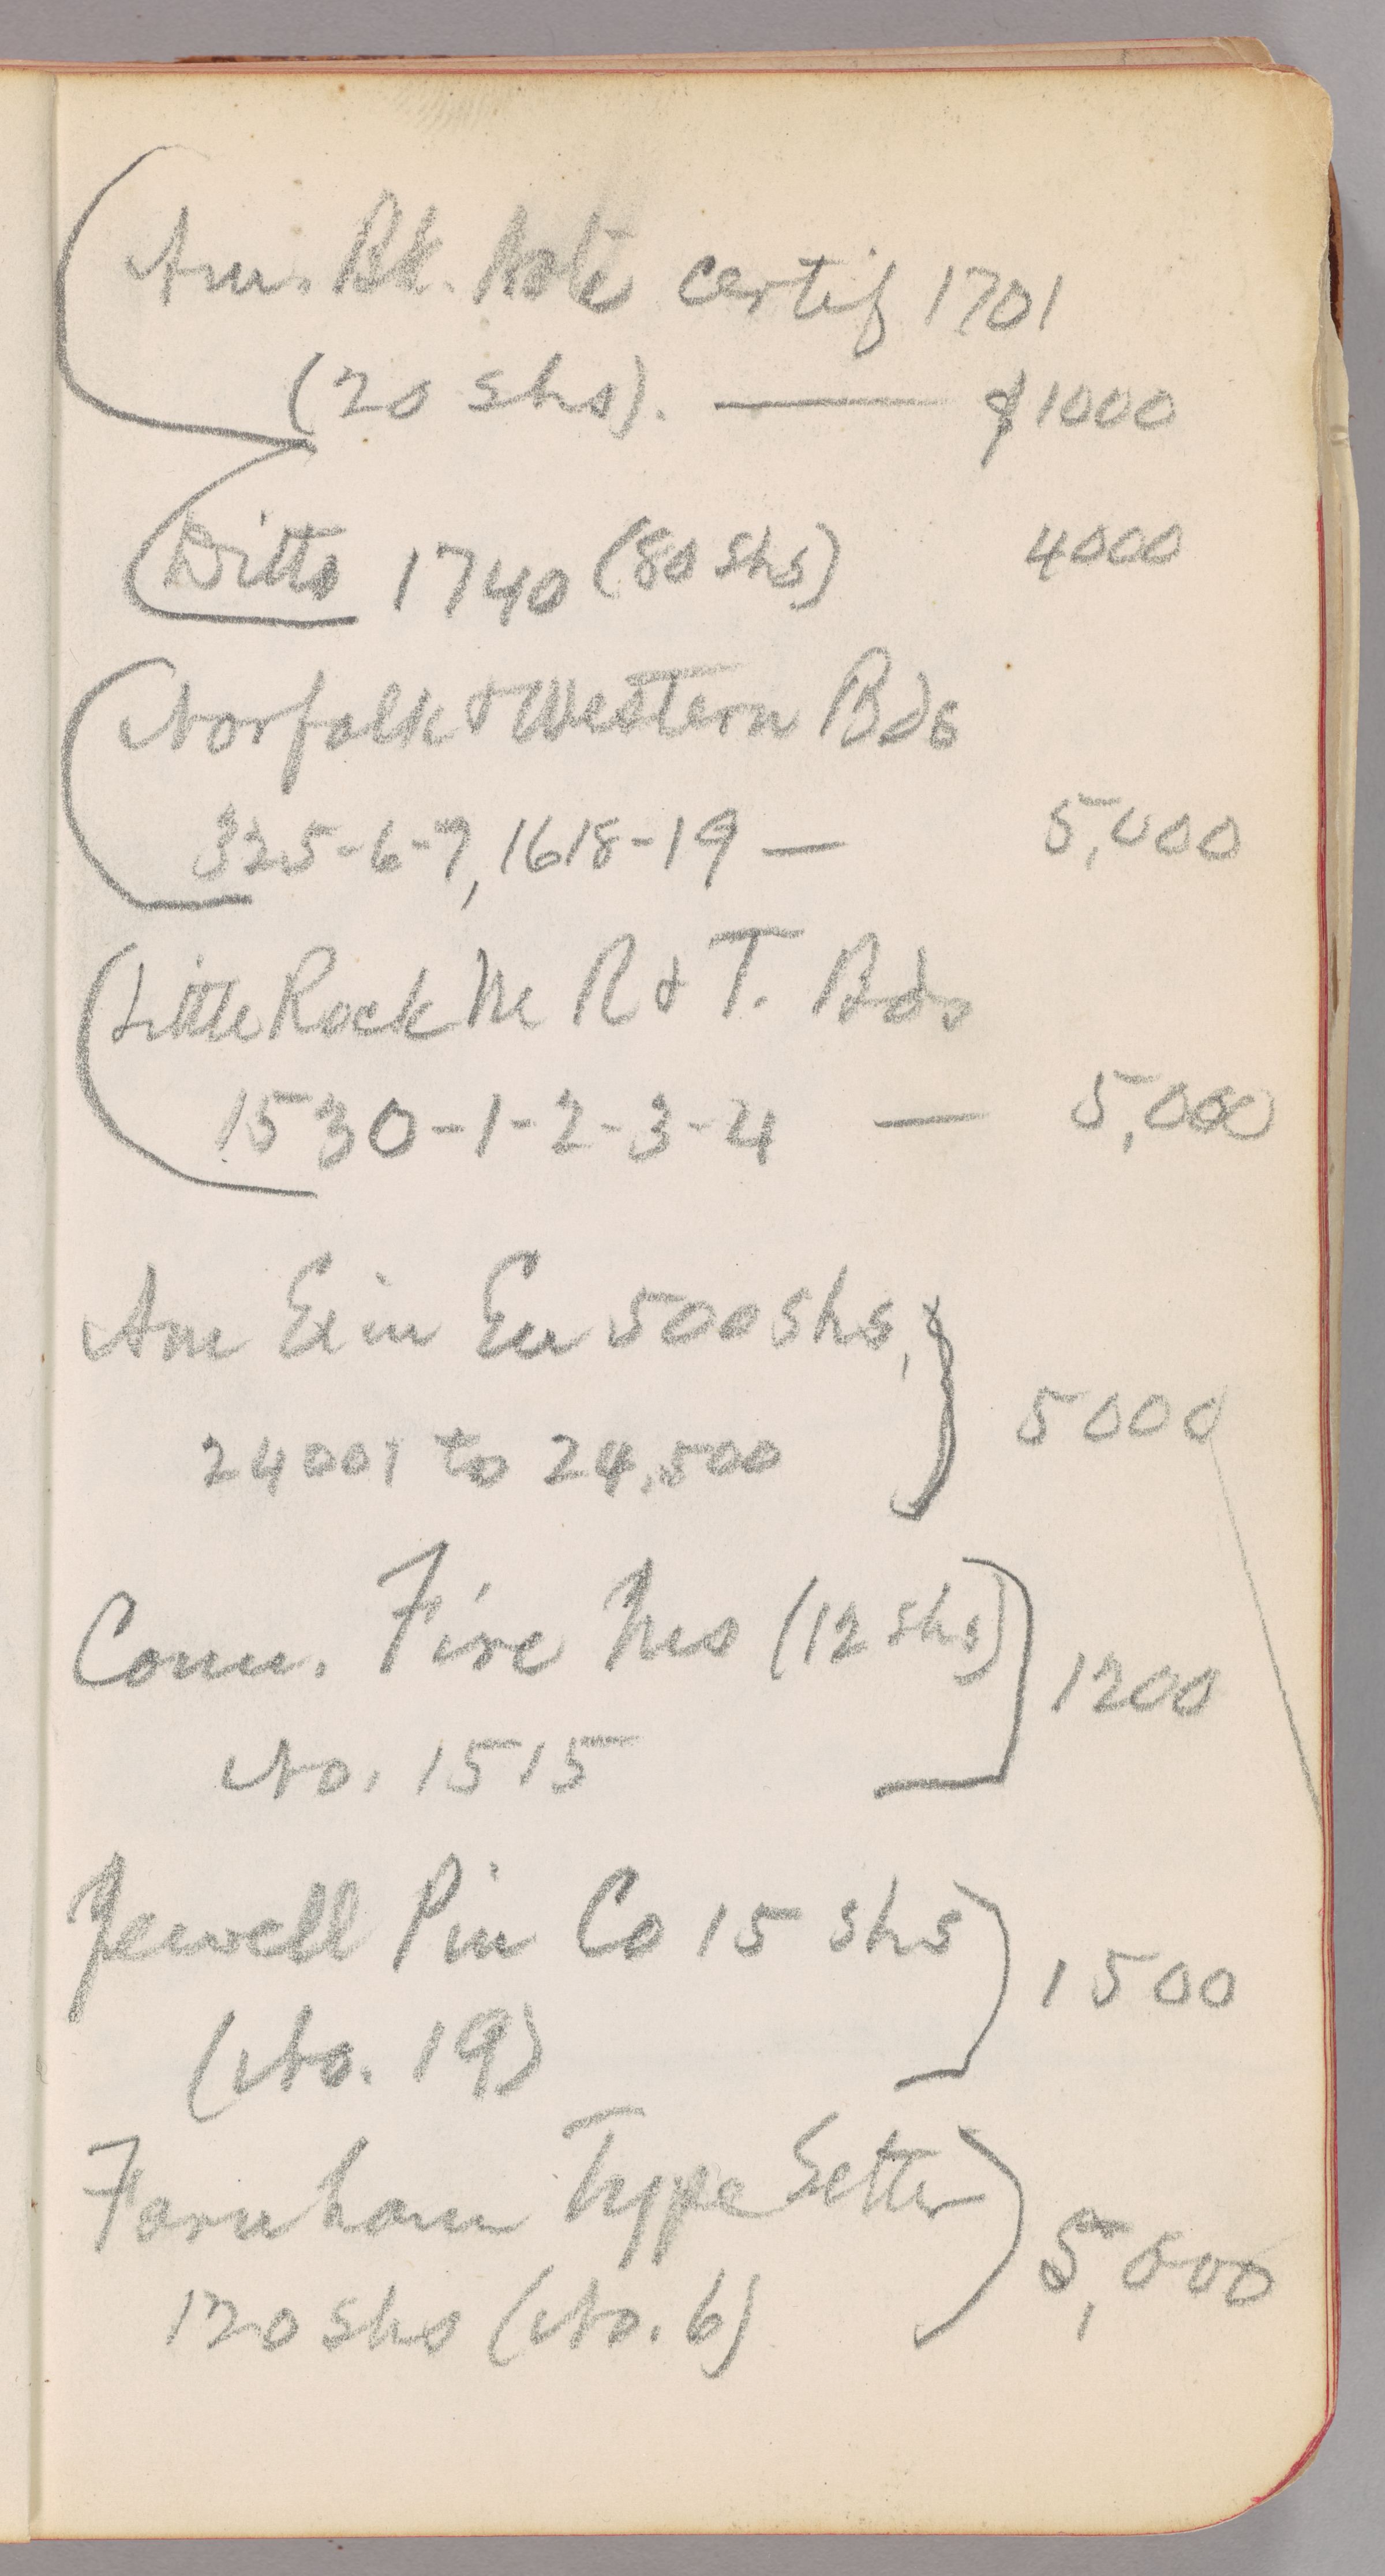 Am. Bk. Note certif 1701
(20 shs). — $1000
Ditto 1740 (80 shs) 4000
Norfolk & Western Bds
325-6-7, 1618-19 — 5,000
Little Rock M R & T. Bds
1530-1-2-3-4 — 5,000
Am Ex in Eu 500 shs,
24001 to 24,500 5000
Conn. Fire Ins (12 shs)
No. 1515 1200
Jewell Pin Co 15 shs
(No. 19) 1500
Farnham Type Setter
120 shs (No. 6) 5,000